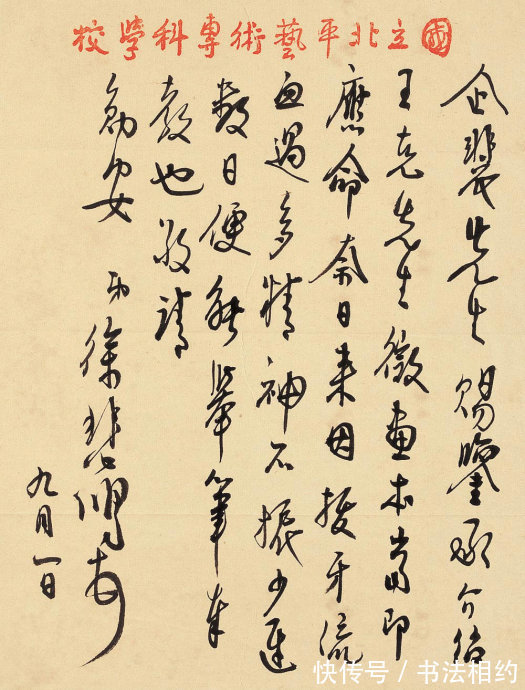 國立北平藝術專科學校
企先生賜鑒承介紹
王克先生徵畫本當即
應命奈日來因拔牙流
血過多精神不振少遲
數日便能舉筆奉
教也敬請
勛安
弟徐悲鴻
九月一日
快传号 / 书法相约